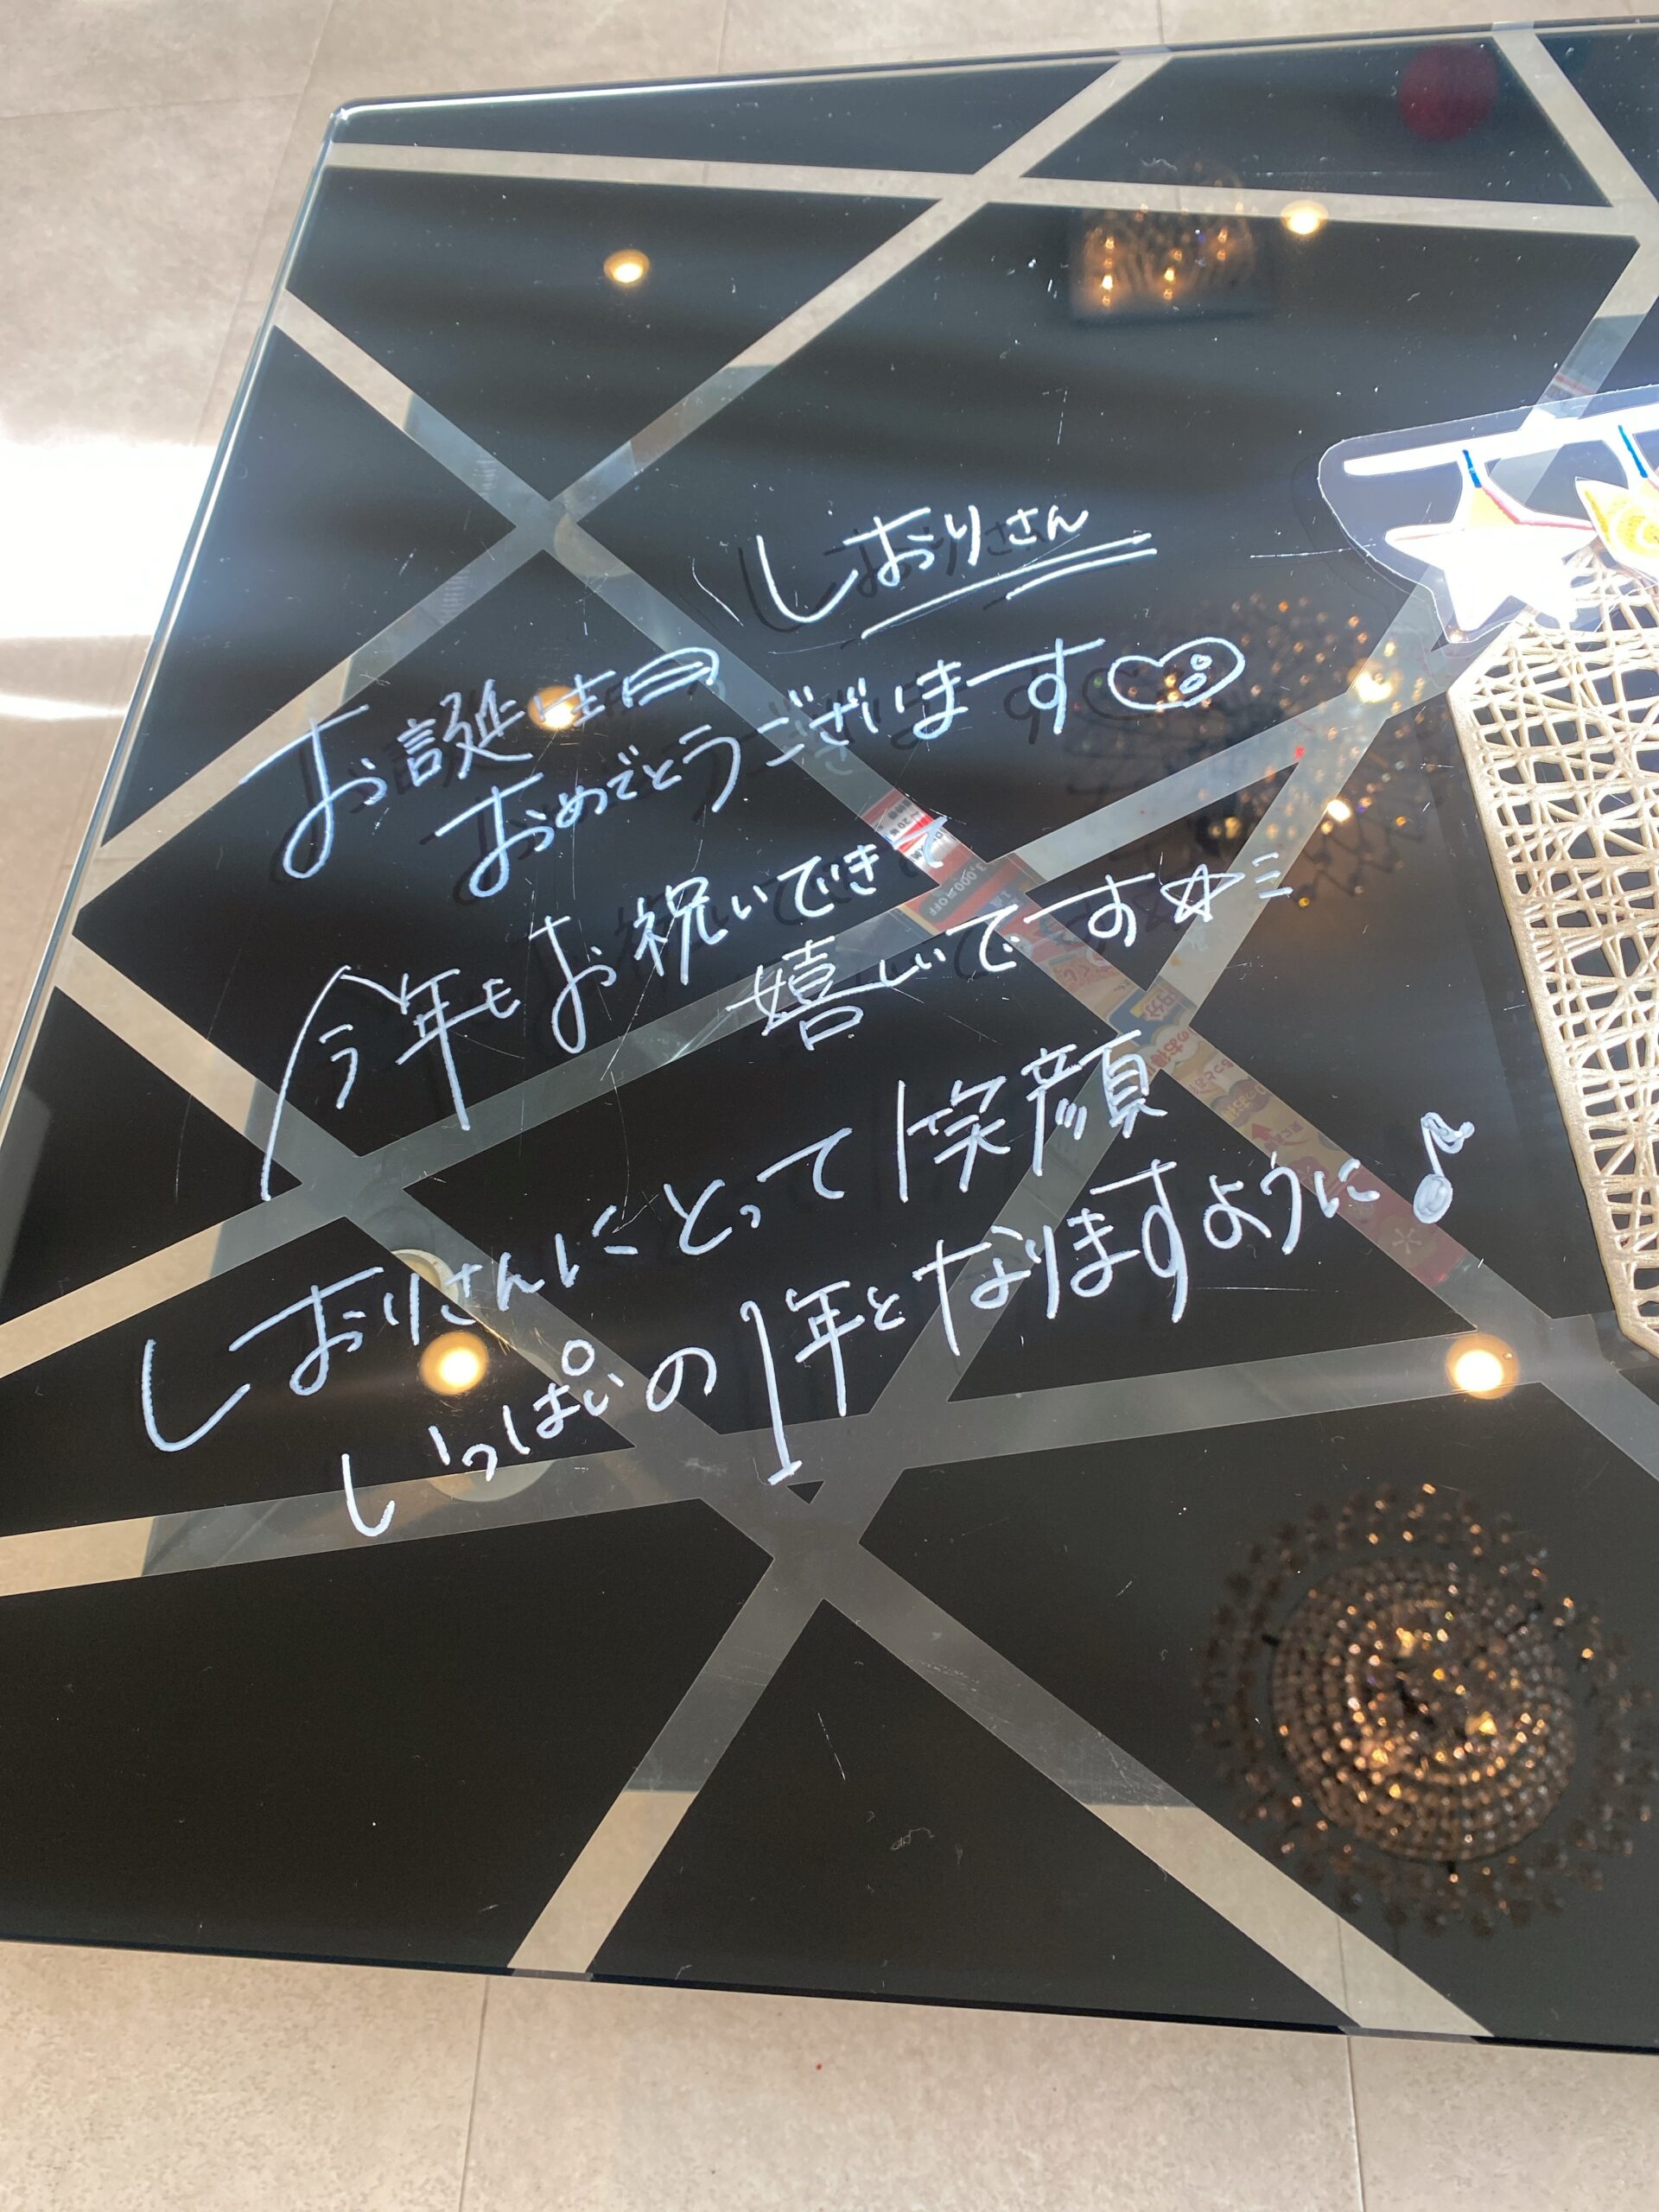 しおりさん
お誕生日
おめでとうございます♡
今年もお祝いできて
嬉しいです☆
しおりさんにとって笑顔
いっぱいの1年となりますように♪
3,000円OFF